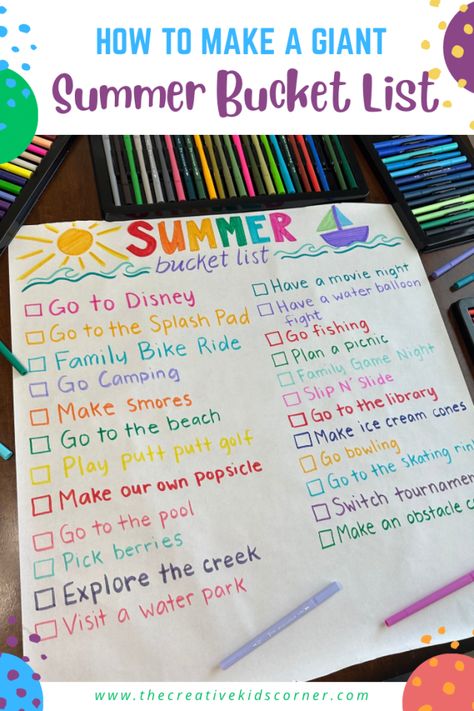 HOW TO MAKE A GIANT
Summer Bucket List
SUMMER
bucket list
Go to Disney
Go to the Splash Pad
Family Bike Ride
Go Camping
Make smores
Go to the beach
Play putt putt golf
Make our own popsicle
Go to the pool
Pick berries
Explore the creek
Visit a water park
Have a movie night
Have a water balloon
fight
Go fishing
Plan a picnic
Family Game Night
Slip N' Slide
Go to the library
Make ice cream cones
Go bowling
Go to the skating rin
Switch tournamen
Make an obstacle c
www.thecreativekidscorner.com